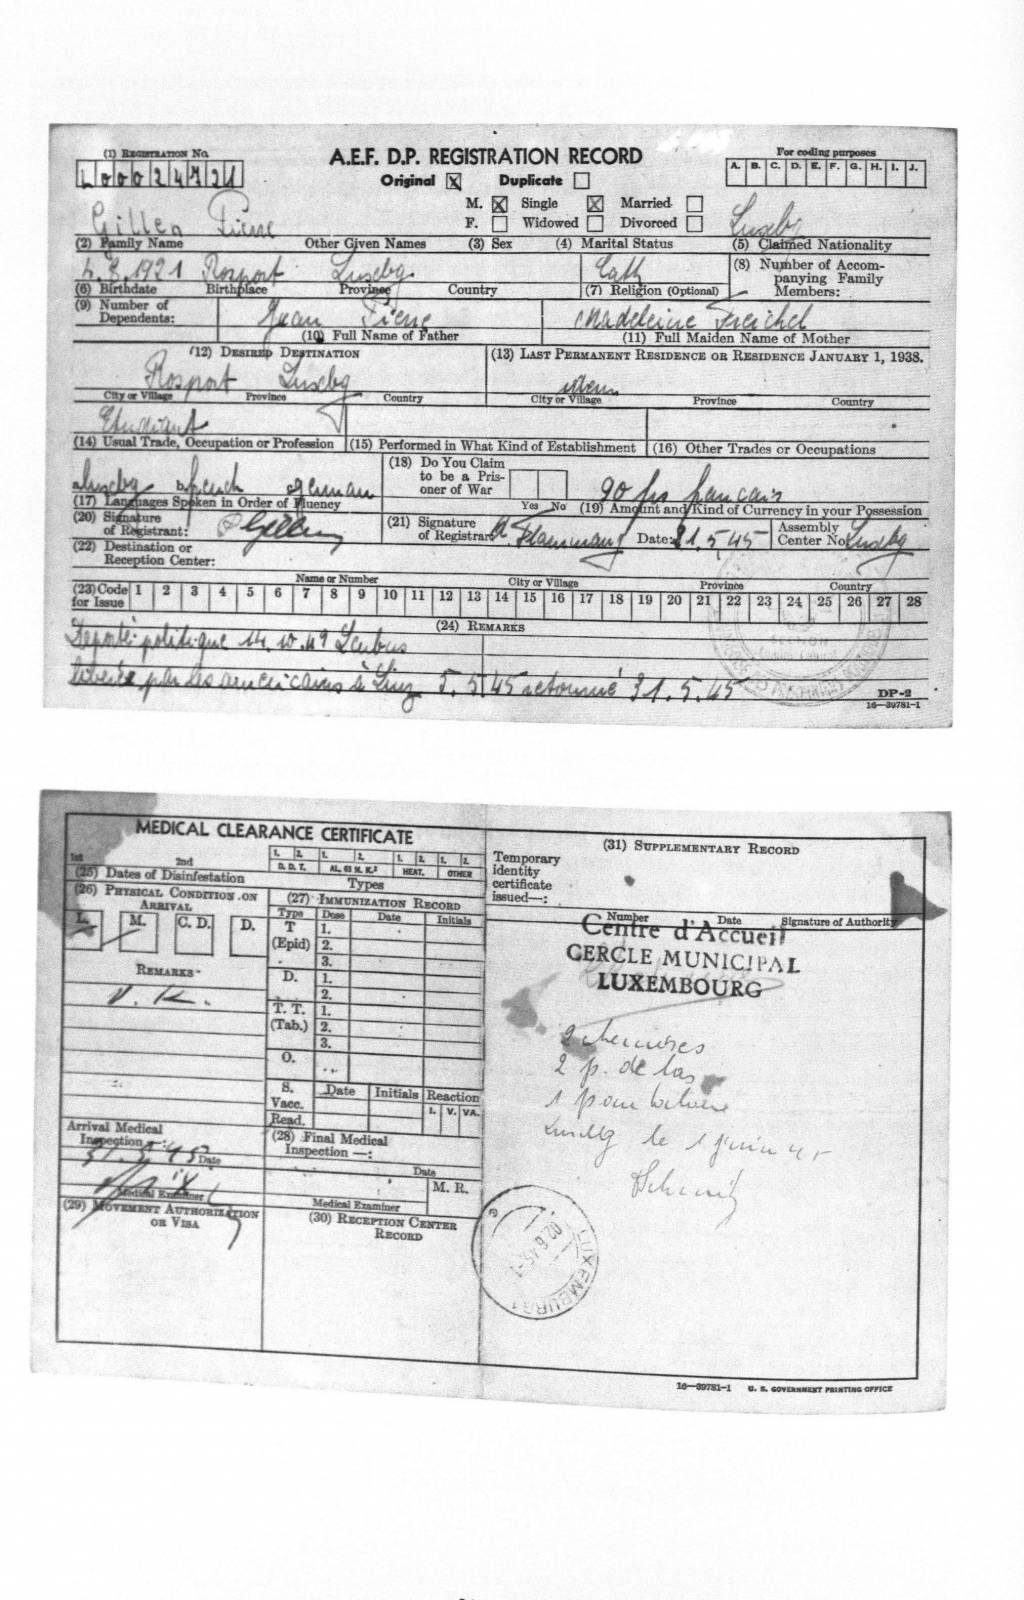 (1) REGISTRATION No.
A.E.F. D.P. REGISTRATION RECORD
For coding purposes
A. B. C. D. E. F. G. H. I. J.
Original ☒ Duplicate ☐
M. ☒ Single ☒ Married ☐
F. ☐ Widowed ☐ Divorced ☐
Gillen Pierre Luxbg
(2) Family Name Other Given Names (3) Sex (4) Marital Status (5) Claimed Nationality
4.8.1921 Rosport Luxbg Cath
(8) Number of Accompanying Family Members:
(6) Birthdate Birthplace Province Country (7) Religion (Optional)
(9) Number of Dependents:
Pierre Madeleine
(10) Full Name of Father (11) Full Maiden Name of Mother
(12) DESIRED DESTINATION (13) LAST PERMANENT RESIDENCE OR RESIDENCE JANUARY 1, 1938.
Rosport Luxbg idem
City or Village Province Country City or Village Province Country
Etudiant
(14) Usual Trade, Occupation or Profession (15) Performed in What Kind of Establishment (16) Other Trades or Occupations
(18) Do You Claim to be a Prisoner of War
a. Luxbg b. french c. german 90 frs francais
(17) Languages Spoken in Order of Fluency Yes No (19) Amount and Kind of Currency in your Possession
(20) Signature of Registrant: (21) Signature of Registrar: Date: 31.5.45 Assembly Center No. Luxbg
(22) Destination or Reception Center:
Name or Number City or Village Province Country
(23) Code for Issue 1 2 3 4 5 6 7 8 9 10 11 12 13 14 15 16 17 18 19 20 21 22 23 24 25 26 27 28
(24) REMARKS
Deporté politique
liberé par les americains à Linz 5.5.45 retourné 31.5.45
DP-2
16—39781-1
MEDICAL CLEARANCE CERTIFICATE
1st 2nd
(25) Dates of Disinfestation
1. 2. 1. 2. 1. 2. 1. 2.
D. D. T. AL. 63 M. K.³ HEAT. OTHER
Types
(26) PHYSICAL CONDITION ON ARRIVAL
L. M. C. D. D.
(27) IMMUNIZATION RECORD
Type Dose Date Initials
T (Epid) 1. 2. 3.
D. 1. 2.
T. T. (Tab.) 1. 2. 3.
O.
S. Vacc. Date Initials Reaction
Read. I. V. VA.
REMARKS
Arrival Medical Inspection —:
31.5.45 Date
Medical Examiner
(28) Final Medical Inspection —:
Date
M. R.
Medical Examiner
(29) MOVEMENT AUTHORIZATION OR VISA
(30) RECEPTION CENTER RECORD
(31) SUPPLEMENTARY RECORD
Temporary identity certificate issued—:
Number Date Signature of Authority
Centre d'Accueil
CERCLE MUNICIPAL
LUXEMBOURG
2 chemises
2 p. de bas
1
le 1 juin 45
LUXEMBURG 1
16—39781-1 U. S. GOVERNMENT PRINTING OFFICE